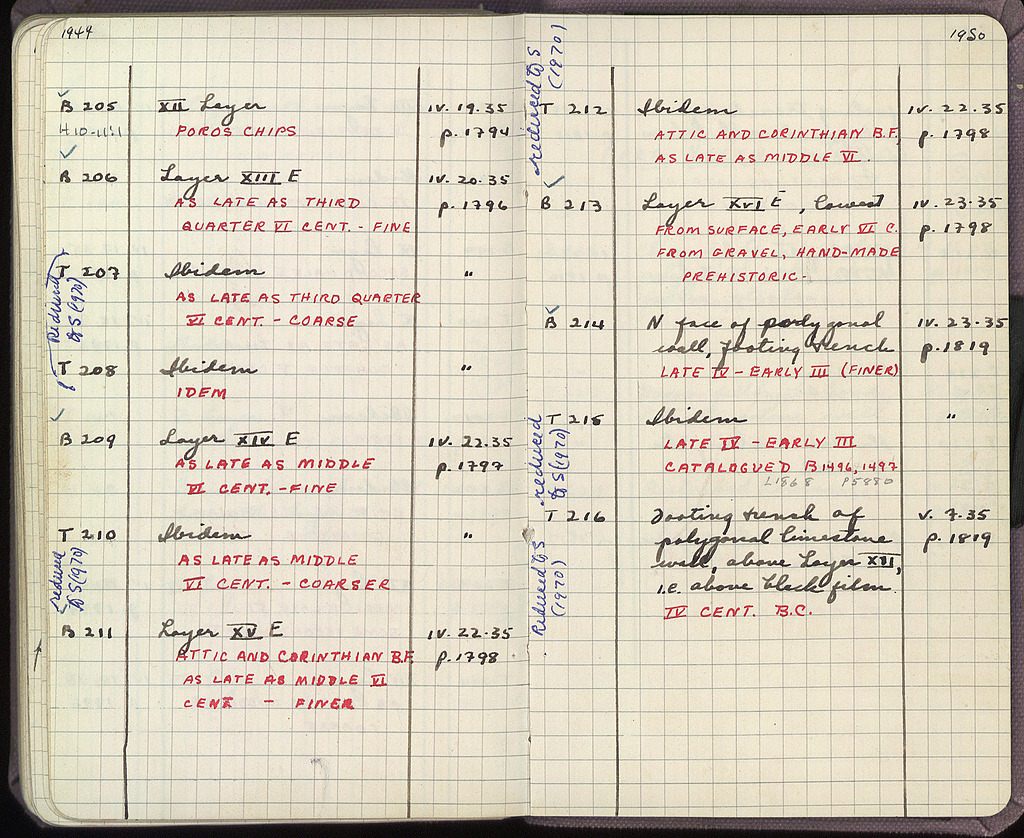 1949
B 205 XII Layer IV. 19.35
H10-11:1 POROS CHIPS p. 1794
B 206 Layer XIII E IV. 20.35
AS LATE AS THIRD p. 1796
QUARTER VI CENT. - FINE
T 207 Ibidem "
AS LATE AS THIRD QUARTER
VI CENT. - COARSE
Reduced to S (1970)
T 208 Ibidem "
IDEM
B 209 Layer XIV E IV. 22.35
AS LATE AS MIDDLE p. 1797
VI CENT. - FINE
T 210 Ibidem "
AS LATE AS MIDDLE
VI CENT. - COARSER
reduced to S (1970)
B 211 Layer XV E IV. 22.35
ATTIC AND CORINTHIAN B.F. p. 1798
AS LATE AS MIDDLE VI
CENT - FINER
1950
reduced to S (1970)
T 212 Ibidem IV. 22.35
ATTIC AND CORINTHIAN B.F. p. 1798
AS LATE AS MIDDLE VI.
B 213 Layer XVI E, lowest IV. 23.35
FROM SURFACE, EARLY VI C. p. 1798
FROM GRAVEL, HAND-MADE
PREHISTORIC.
B 214 N face of polygonal IV. 23.35
wall, footing trench p. 1819
LATE IV - EARLY III (FINER)
T 215 Ibidem "
LATE IV - EARLY III
CATALOGUED B1496, 1497
L1868 P5880
reduced to S (1970)
T 216 Footing trench of V. 7.35
polygonal limestone p. 1819
wall, above Layer XII,
i.e. above black film.
IV CENT. B.C.
Reduced to S (1970)